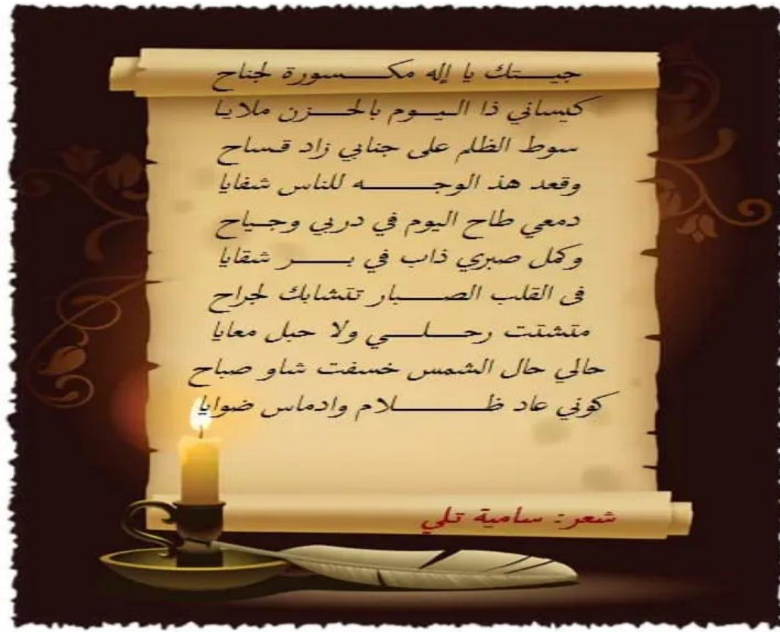 جيتك يا إله مكسورة لجناح
كيساني ذا اليوم بالحزن ملايا
سوط الظلم على جنابي زاد قساح
وقعد هذ الوجه للناس شفايا
دمعي طاح اليوم في دربي وجياح
وكمل صبري ذاب في بر شقايا
فى القلب الصبار تتشابك لجراح
متشتت رحلي ولا حبل معايا
حالي حال الشمس خسفت شاو صباح
كوني عاد ظلام وادماس ضوايا
شعر: سامية تلي